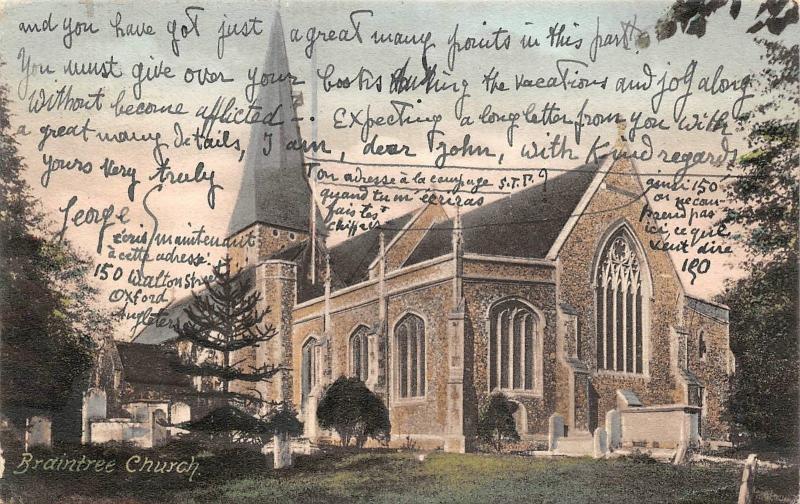 and you have got just a great many points in this part.
You must give over your books during the vacations and jog along
Without become afflicted! - Expecting a long letter from you with
a great many details, I am, dear John, with Kind regards
yours very truly
George S
écris maintenant
à cette adresse:
150 Walton Str
Oxford
Angleterre
Ton adresse à la conjuge s.T.P.?
quand tu m'écriras
fais tes
chiffres
ainsi 150
on ne com-
prend pas
ici, ce qu'ils
veut dire
150
Braintree Church.